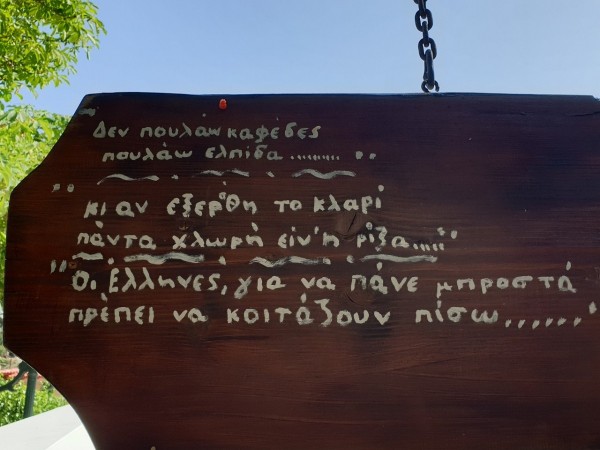 "Δεν πουλάω καφεδες
πουλάω ελπίδα ......... "
"κι αν εξερθη το κλαρί
πάντα χλωρή είν'η ρίζα......"
"Οι Έλληνες, για να πάνε μπροστά
πρέπει να κοιτάζουν πίσω,,,,,,,"